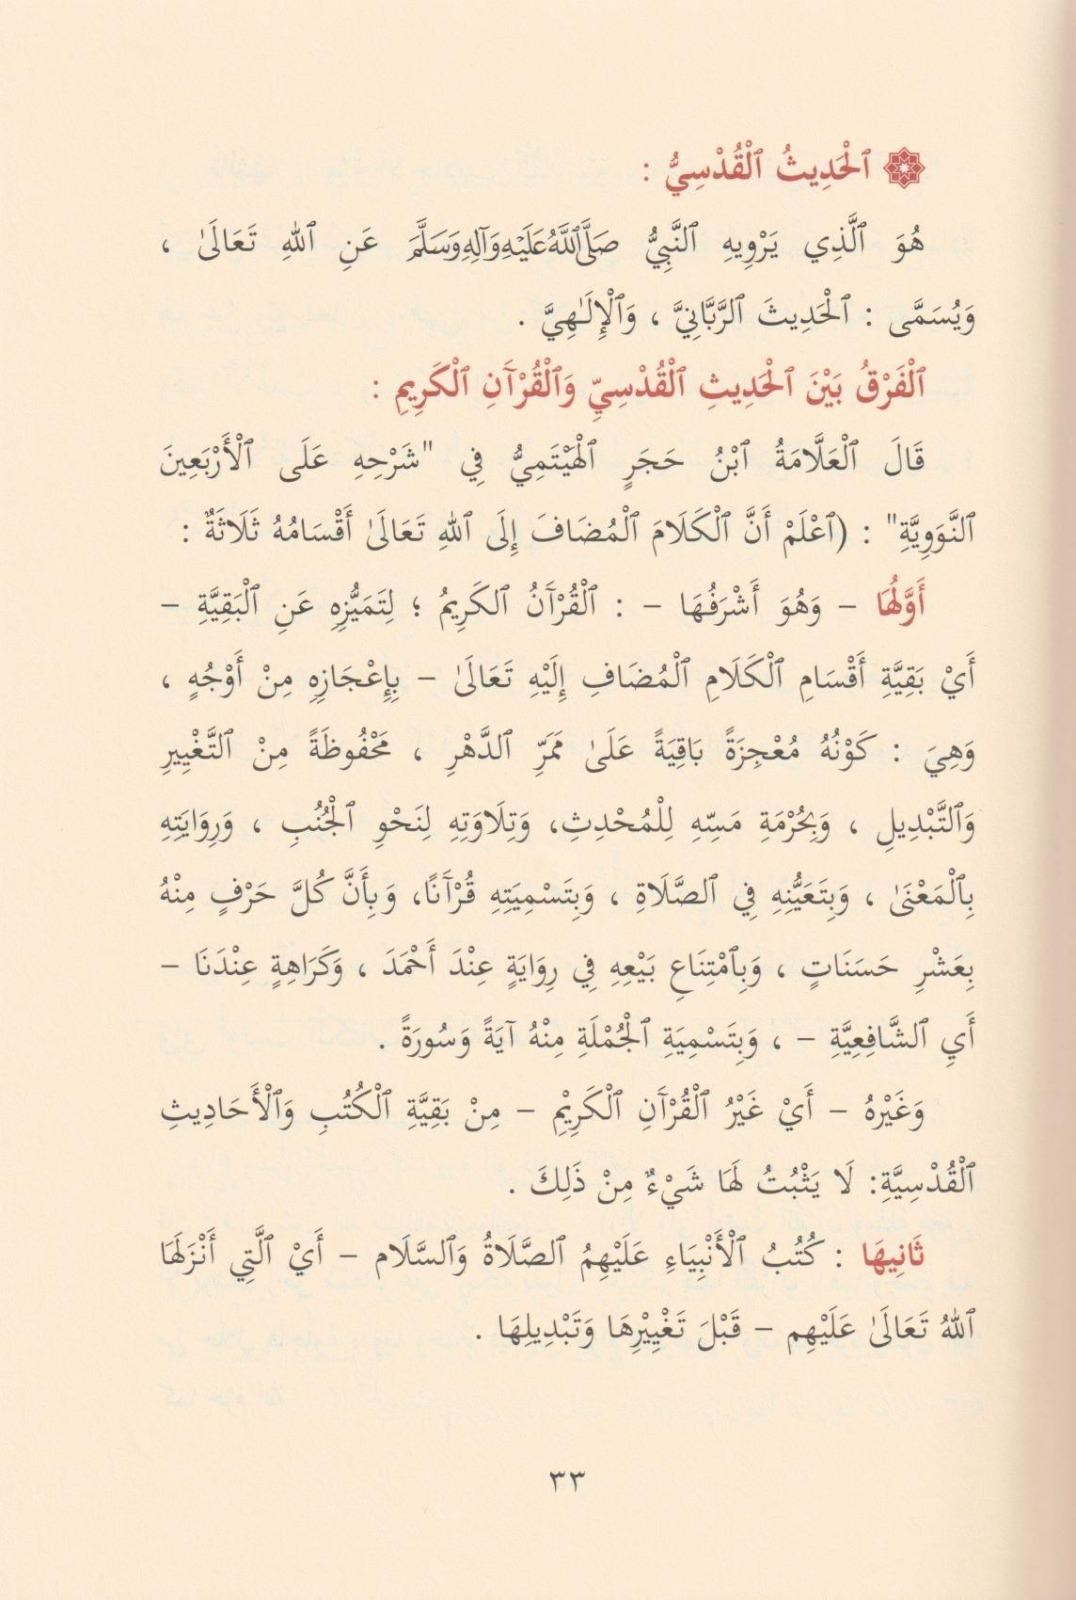 ٱلْحَدِيثُ ٱلْقُدْسِيُّ :
هُوَ ٱلَّذِي يَرْوِيهِ ٱلنَّبِيُّ صَلَّى ٱللَّهُ عَلَيْهِ وَآلِهِ وَسَلَّمَ عَنِ ٱللهِ تَعَالَىٰ ،
وَيُسَمَّى : ٱلْحَدِيثَ ٱلرَّبَّانِيَّ ، وَٱلْإِلَـٰهِيَّ .
ٱلْفَرْقُ بَيْنَ ٱلْحَدِيثِ ٱلْقُدْسِيِّ وَٱلْقُرْآنِ ٱلْكَرِيمِ :
قَالَ ٱلْعَلَّامَةُ ٱبْنُ حَجَرٍ ٱلْهَيْتَمِيُّ فِي "شَرْحِهِ عَلَى ٱلْأَرْبَعِينَ
ٱلنَّوَوِيَّةِ" : (ٱعْلَمْ أَنَّ ٱلْكَلَامَ ٱلْمُضَافَ إِلَى ٱللهِ تَعَالَىٰ أَقْسَامُهُ ثَلَاثَةٌ :
أَوَّلُهَا – وَهُوَ أَشْرَفُهَا – : ٱلْقُرْآنُ ٱلكَرِيمُ ؛ لِتَمَيُّزِهِ عَنِ ٱلْبَقِيَّةِ –
أَيْ بَقِيَّةِ أَقْسَامِ ٱلْكَلَامِ ٱلْمُضَافِ إِلَيْهِ تَعَالَىٰ – بِإِعْجَازِهِ مِنْ أَوْجُهٍ ،
وَهِيَ : كَوْنُهُ مُعْجِزَةً بَاقِيَةً عَلَىٰ مَمَرِّ ٱلدَّهْرِ ، مَحْفُوظَةً مِنْ ٱلتَّغْيِيرِ
وَٱلتَّبْدِيلِ ، وَبِحُرْمَةِ مَسِّهِ لِلْمُحْدِثِ، وَتِلَاوَتِهِ لِنَحْوِ ٱلْجُنُبِ ، وَرِوَايَتِهِ
بِٱلْمَعْنَىٰ ، وَبِتَعَيُّنِهِ فِي ٱلصَّلَاةِ ، وَبِتَسْمِيَتِهِ قُرْآنًا، وَبِأَنَّ كُلَّ حَرْفٍ مِنْهُ
بِعَشْرِ حَسَنَاتٍ ، وَبِٱمْتِنَاعِ بَيْعِهِ فِي رِوَايَةٍ عِنْدَ أَحْمَدَ ، وَكَرَاهِةٍ عِنْدَنَا –
أَيِ ٱلشَّافِعِيَّةِ – ، وَبِتَسْمِيَةِ ٱلْجُمْلَةِ مِنْهُ آيَةً وَسُورَةً .
وَغَيْرُهُ – أَيْ غَيْرُ ٱلْقُرْآنِ ٱلْكَرِيْمِ – مِنْ بَقِيَّةِ ٱلْكُتُبِ وَٱلْأَحَادِيثِ
ٱلْقُدْسِيَّةِ: لَا يَثْبُتُ لَهَا شَيْءٌ مِنْ ذَلِكَ .
ثَانِيهَا : كُتُبُ ٱلْأَنْبِيَاءِ عَلَيْهِمُ ٱلصَّلَاةُ وَٱلسَّلَام – أَيْ ٱلَّتِي أَنْزَلَهَا
ٱللهُ تَعَالَىٰ عَلَيْهِم – قَبْلَ تَغْيِيْرِهَا وَتَبْدِيلِهَا .
٣٣